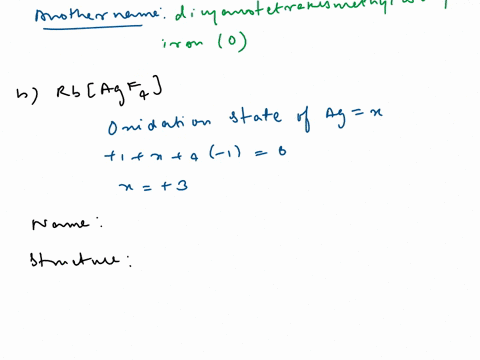 Another name:
iron (0)
b) Rb[AgF₄]
Oxidation state of Ag = x
+1 + x + 4 (-1) = 0
x = + 3
Name:
Structure: